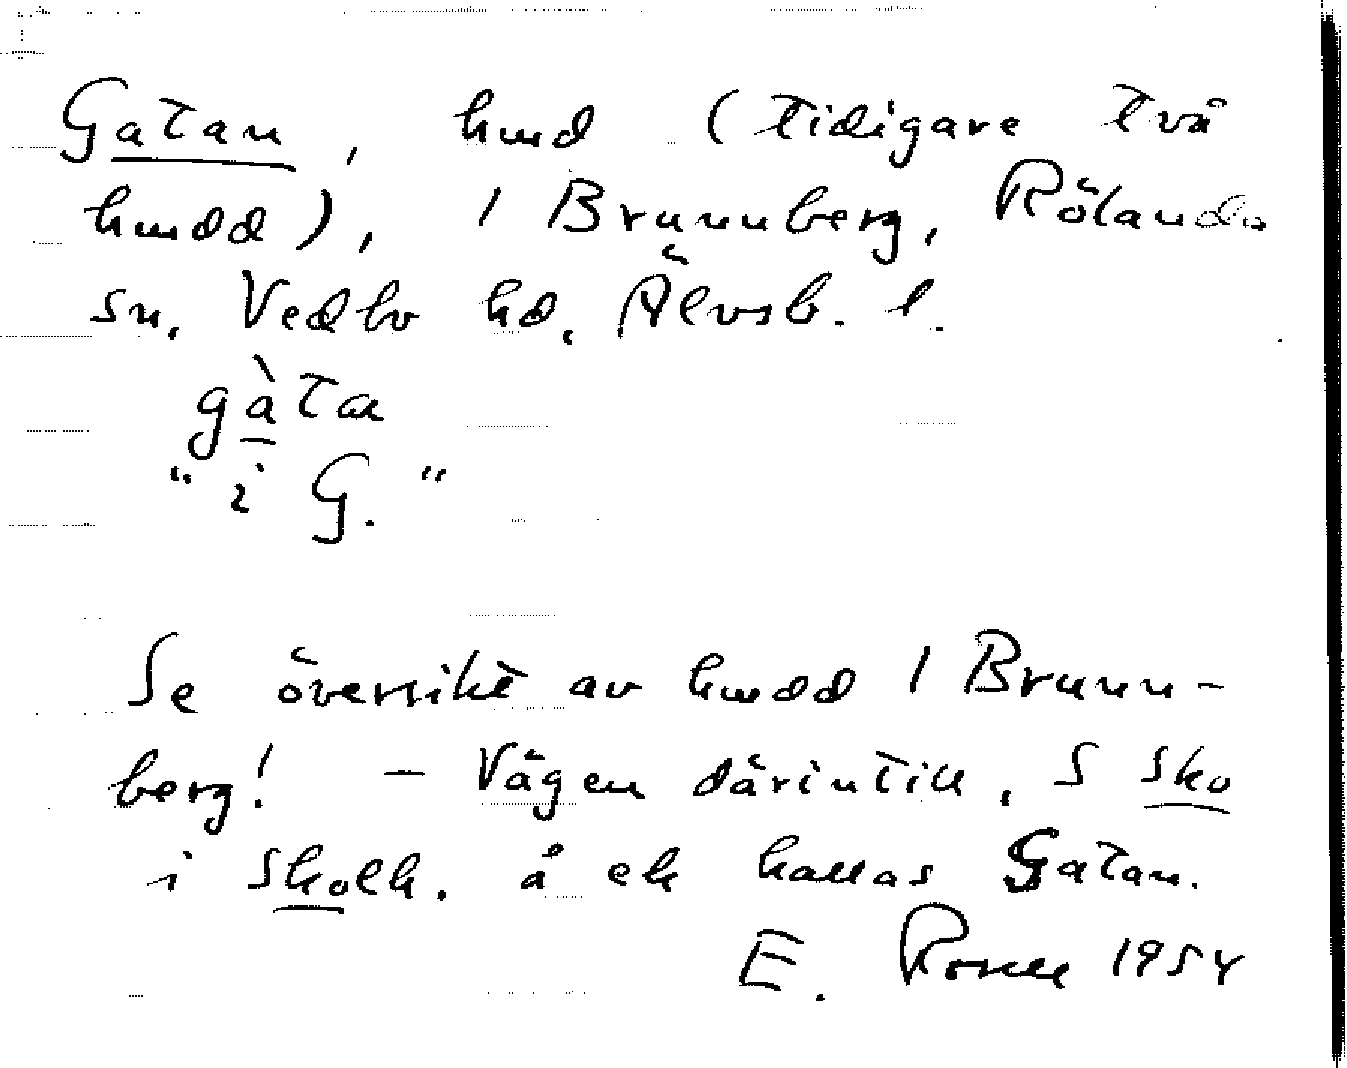 Gatan, hmd (tidigare två
hmdd), i Brunnberg, Rölanda
sn, Vedbo hd, Älvsb. l.
gàta
"i G."
Se översikt av hmdd i Brunn-
berg! — Vägen därintill, S sko
i skolh. å ek kallas Gatan.
E. Rosell 1954